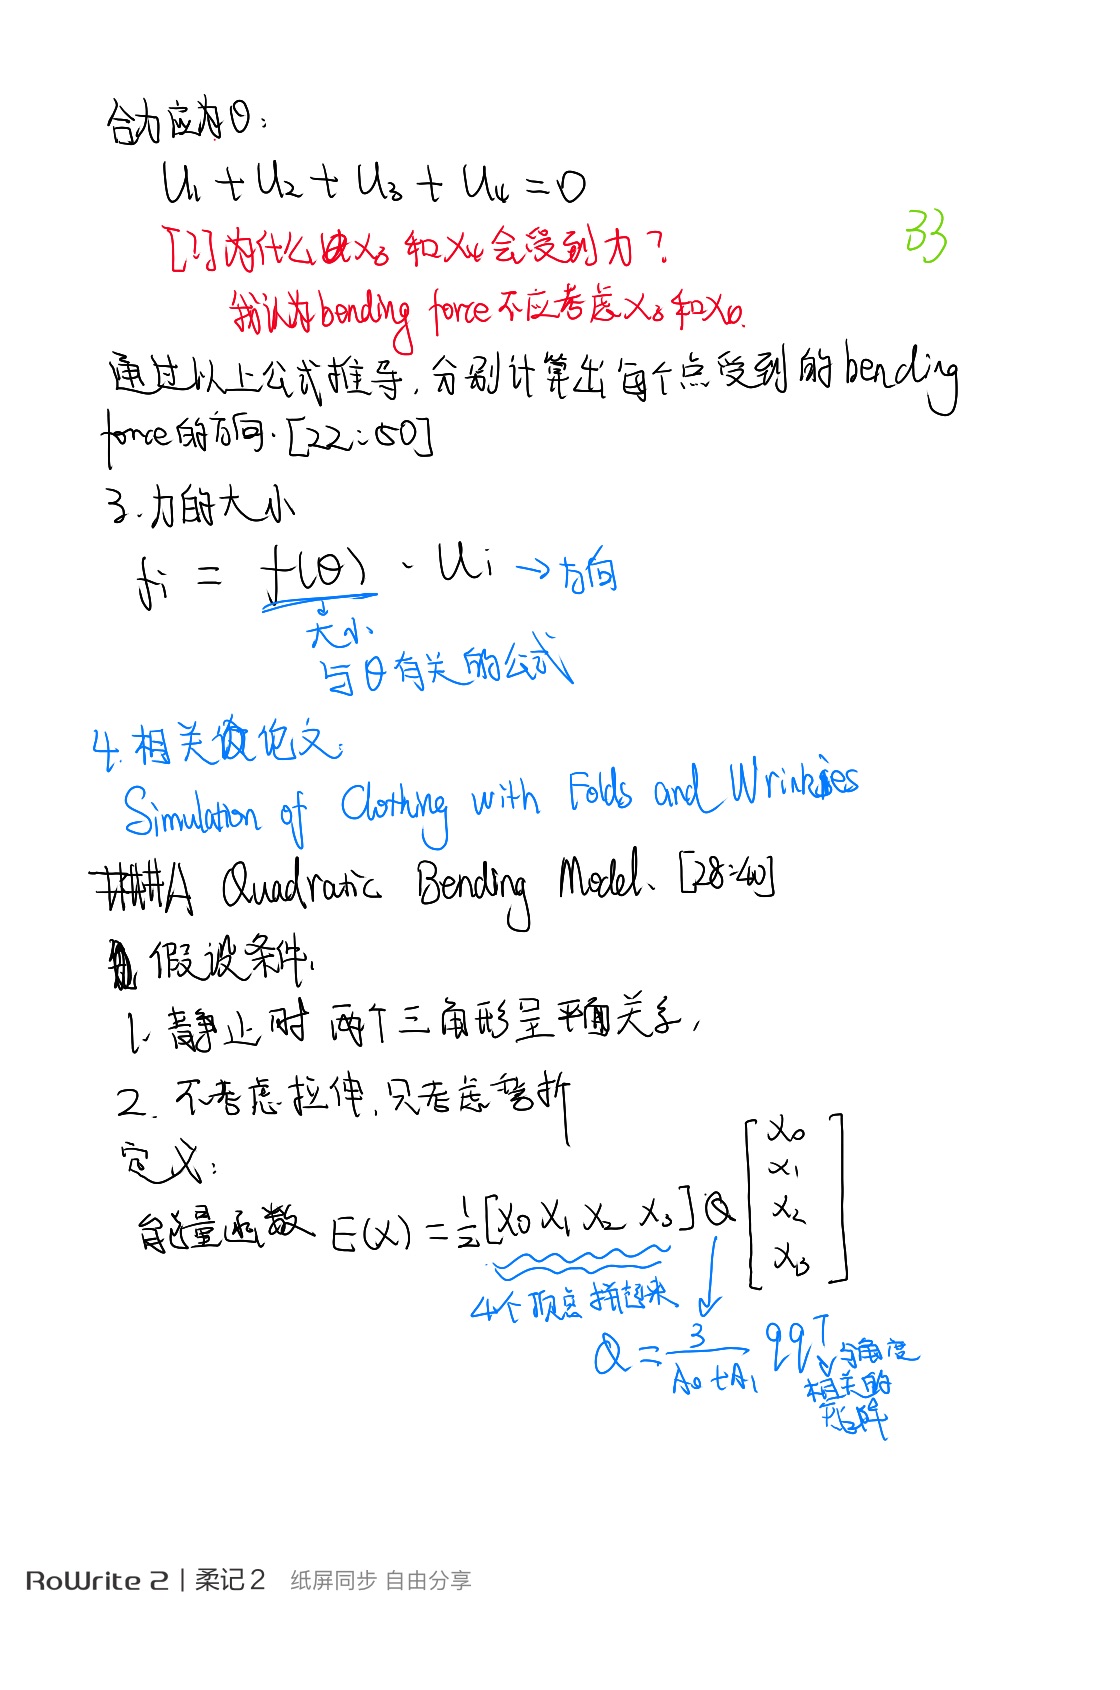 合力应为0：
U₁ + U₂ + U₃ + U₄ = 0
33
[?] 为什么 X₃ 和 X₄ 会受到力？
我认为 bending force 不应考虑 X₃ 和 X₀.
通过以上公式推导，分别计算出每个点受到的 bending
force 的方向. [22:50]
3. 力的大小
fᵢ = f(θ) · Uᵢ → 方向
大小
与 θ 有关的公式
4. 相关论文：
Simulation of Clothing with Folds and Wrinkles
### A Quadratic Bending Model. [28:40]
假设条件.
1. 静止时 两个三角形呈平面关系，
2. 不考虑拉伸，只考虑弯折
定义：
能量函数 E(X) = ½ [X₀ X₁ X₂ X₃] Q [X₀ X₁ X₂ X₃]
4个顶点拼起来
Q = 3/(A₀+A₁) qqᵀ
与角度
相关的
矩阵
RoWrite 2 | 柔记 2 纸屏同步 自由分享